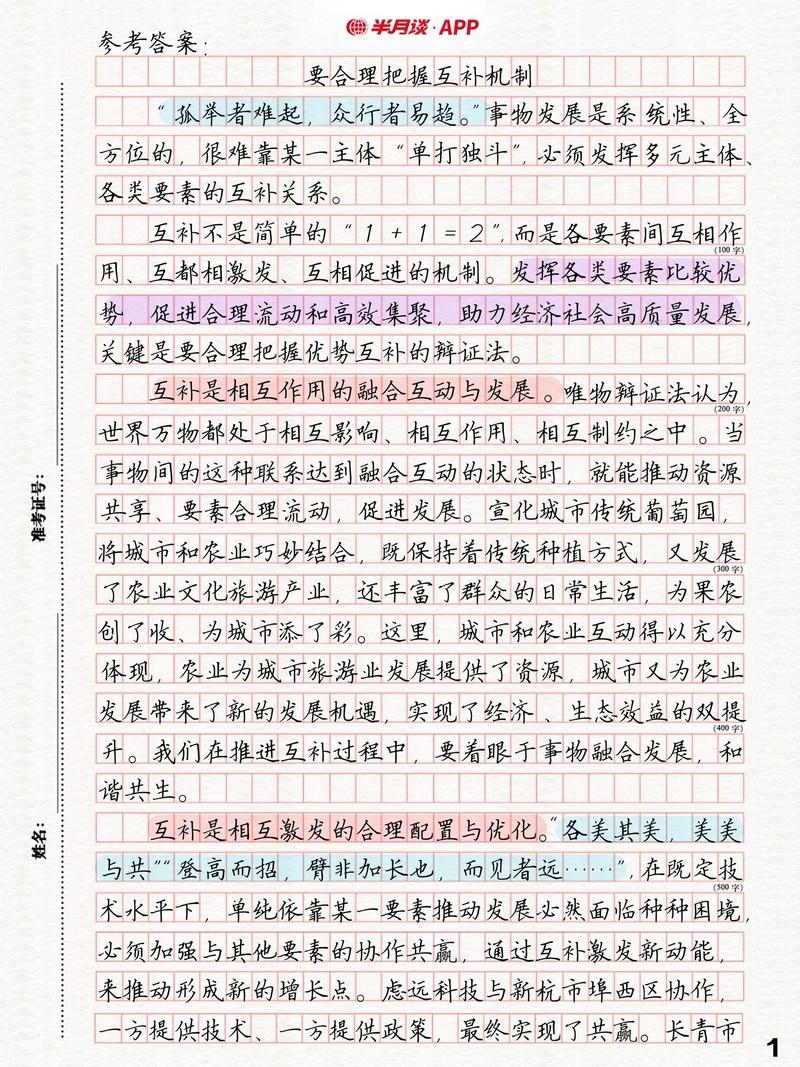 半月谈·APP
参考答案：
要合理把握互补机制
“孤举者难起，众行者易趋。”事物发展是系统性、全
(100字)
方位的，很难靠某一主体“单打独斗”，必须发挥多元主体、
各类要素的互补关系。
互补不是简单的“1+1=2”，而是各要素间互相作
用、互都相激发、互相促进的机制。发挥各类要素比较优
势，促进合理流动和高效集聚，助力经济社会高质量发展，
关键是要合理把握优势互补的辩证法。
互补是相互作用的融合互动与发展。唯物辩证法认为，
(200字)
世界万物都处于相互影响、相互作用、相互制约之中。当
事物间的这种联系达到融合互动的状态时，就能推动资源
共享、要素合理流动，促进发展。宣化城市传统葡萄园，
将城市和农业巧妙结合，既保持着传统种植方式，又发展
(300字)
了农业文化旅游产业，还丰富了群众的日常生活，为果农
创了收、为城市添了彩。这里，城市和农业互动得以充分
体现，农业为城市旅游业发展提供了资源，城市又为农业
发展带来了新的发展机遇，实现了经济、生态效益的双提
(400字)
升。我们在推进互补过程中，要着眼于事物融合发展，和
谐共生。
互补是相互激发的合理配置与优化。“各美其美，美美
与共”“登高而招，臂非加长也，而见者远……”，在既定技
(500字)
术水平下，单纯依靠某一要素推动发展必然面临种种困境，
必须加强与其他要素的协作共赢，通过互补激发新动能，
来推动形成新的增长点。虑远科技与新杭市埠西区协作，
一方提供技术、一方提供政策，最终实现了共赢。长青市
准考证号：
姓名：
1